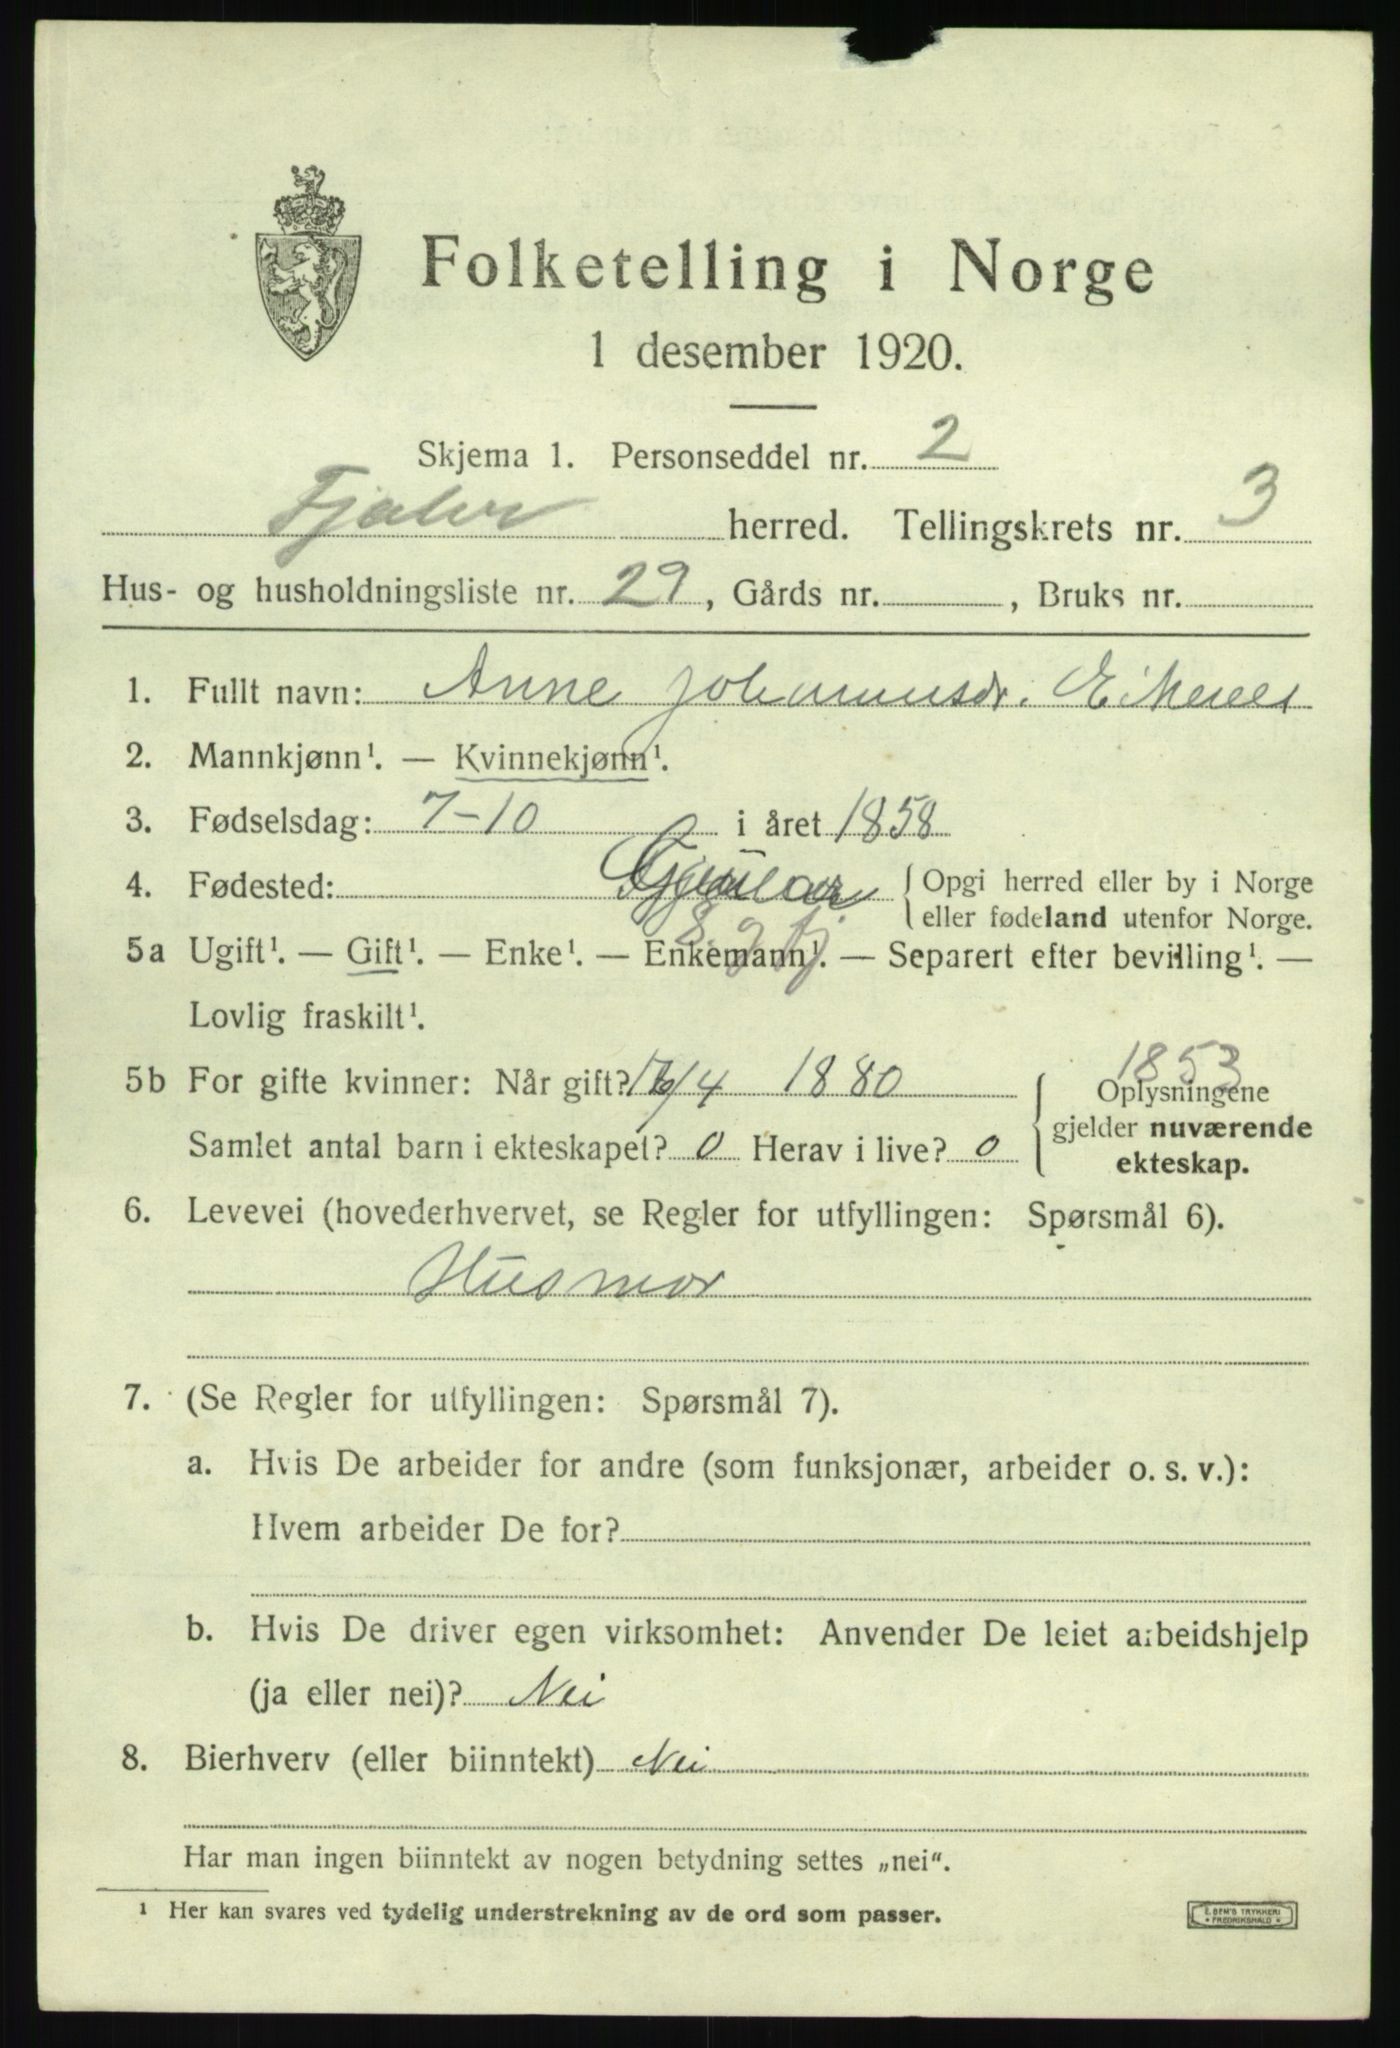 Folketelling i Norge
1 desember 1920.
Skjema 1. Personseddel nr. 2
Fjaler herred. Tellingskrets nr. 3
Hus- og husholdningsliste nr. 29, Gårds nr. , Bruks nr.
1. Fullt navn: Anne Johannesdr.
2. Mannkjønn¹. — Kvinnekjønn¹.
3. Fødselsdag: 7-10 i året 1858
4. Fødested: { Opgi herred eller by i Norge
eller fødeland utenfor Norge.
5a Ugift¹. — Gift¹. — Enke¹. — Enkemann¹. — Separert efter bevilling¹. —
Lovlig fraskilt¹.
1853
5b For gifte kvinner: Når gift? /4 1880 { Oplysningene
gjelder nuværende
Samlet antal barn i ekteskapet? 0 Herav i live? 0
ekteskap.
6. Levevei (hovederhvervet, se Regler for utfyllingen: Spørsmål 6).
Husmor
7. (Se Regler for utfyllingen: Spørsmål 7).
a. Hvis De arbeider for andre (som funksjonær, arbeider o. s. v.):
Hvem arbeider De for?
b. Hvis De driver egen virksomhet: Anvender De leiet arbeidshjelp
(ja eller nei)? Nei
8. Bierhverv (eller biinntekt) Nei
Har man ingen biinntekt av nogen betydning settes „nei“.
¹ Her kan svares ved tydelig understrekning av de ord som passer.
TRYKKERI
FREDRIKSHALD